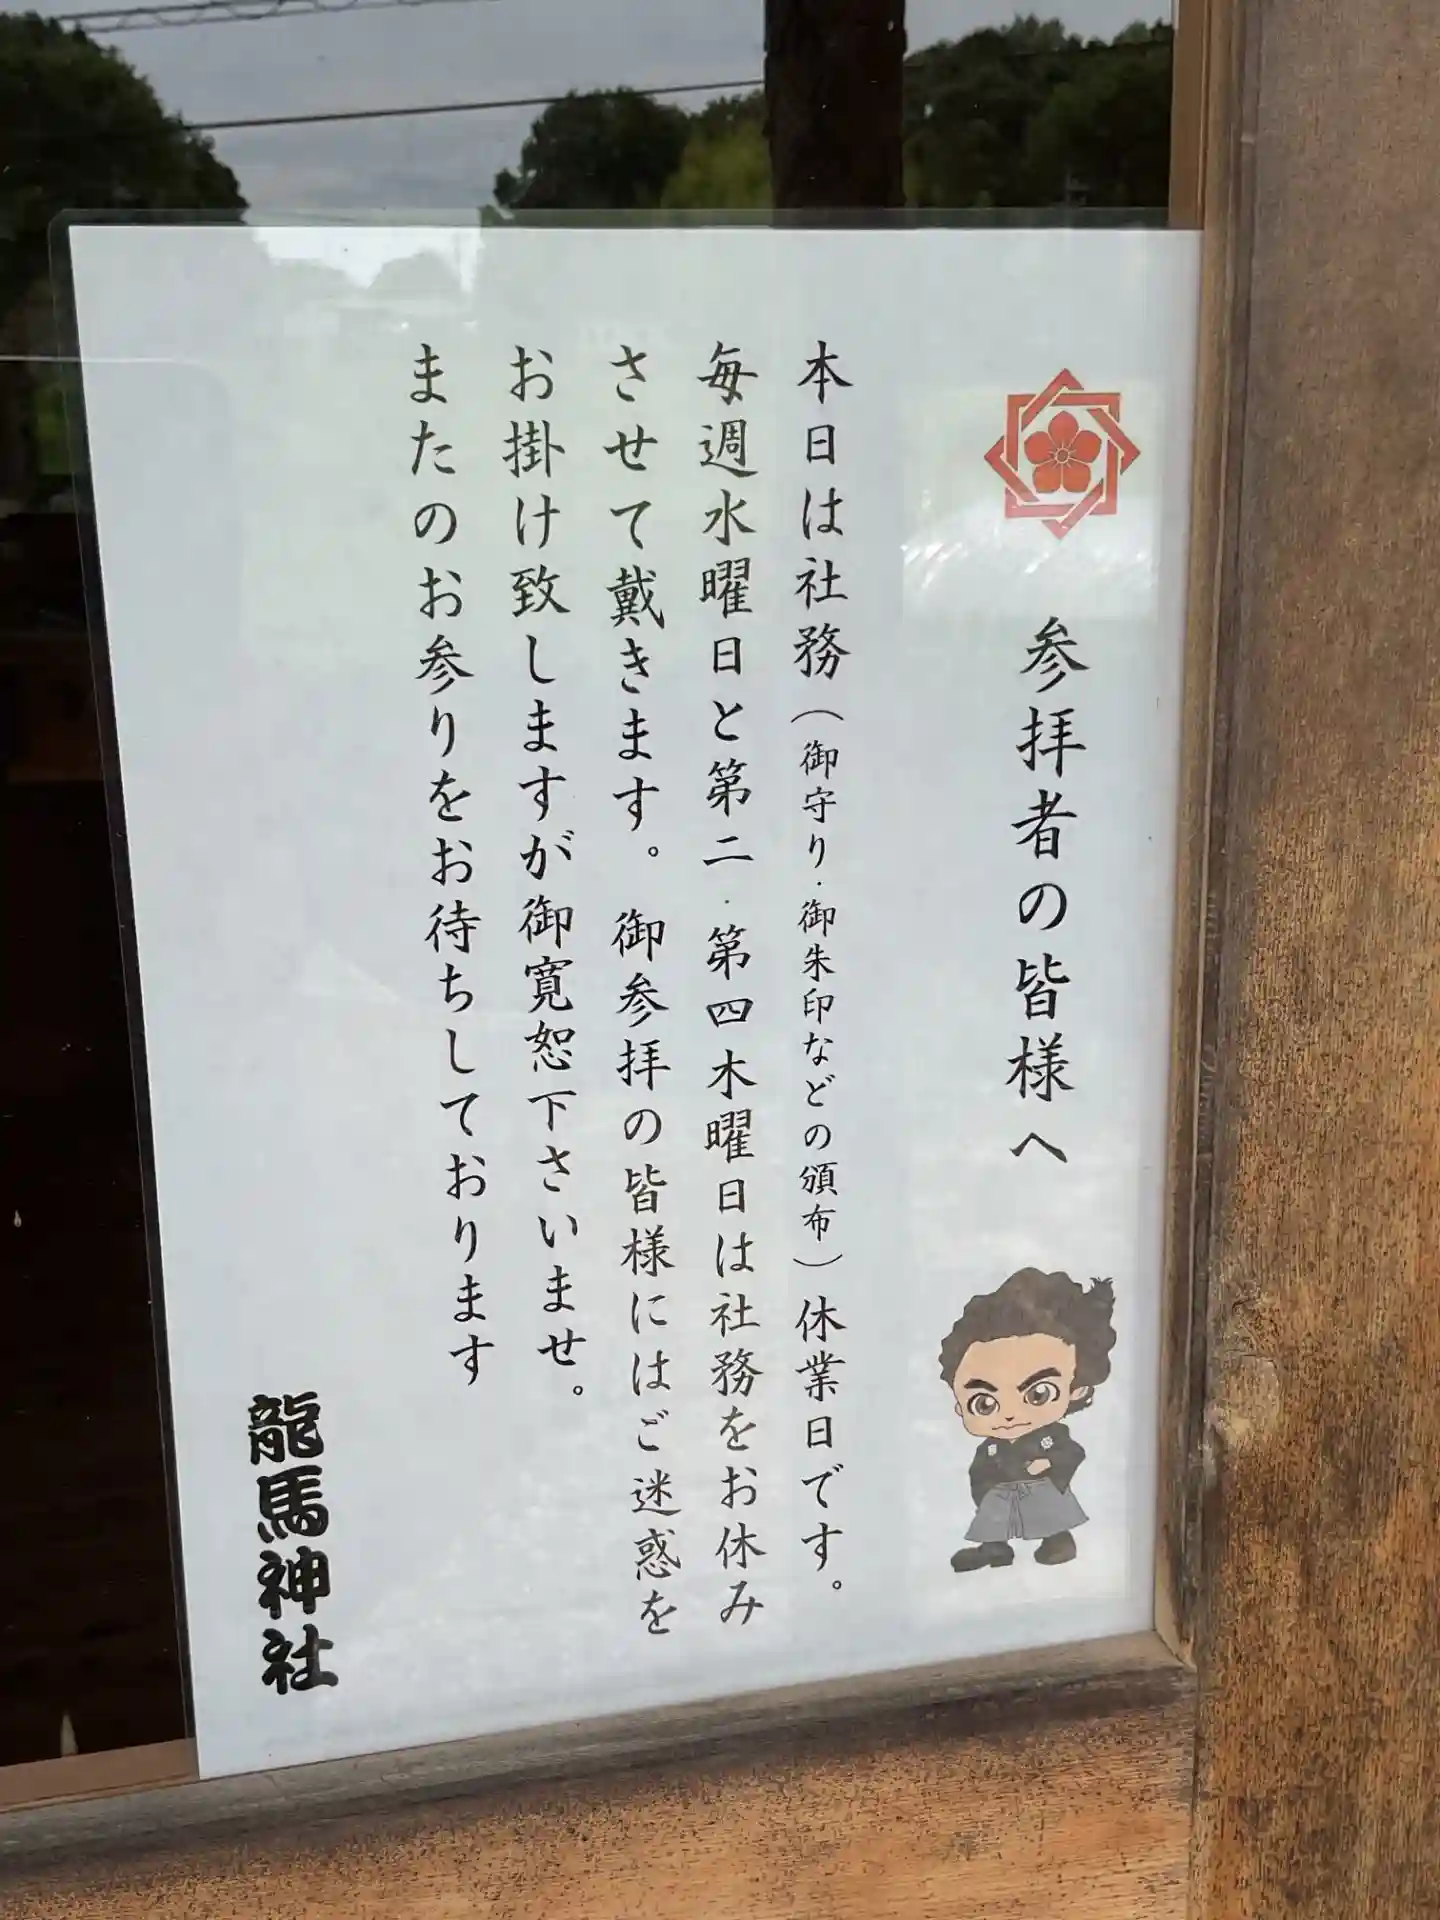 参拝者の皆様へ
本日は社務（御守り・御朱印などの頒布）休業日です。
毎週水曜日と第二・第四木曜日は社務をお休み
させて戴きます。御参拝の皆様にはご迷惑を
お掛け致しますが御寛恕下さいませ。
またのお参りをお待ちしております
龍馬神社